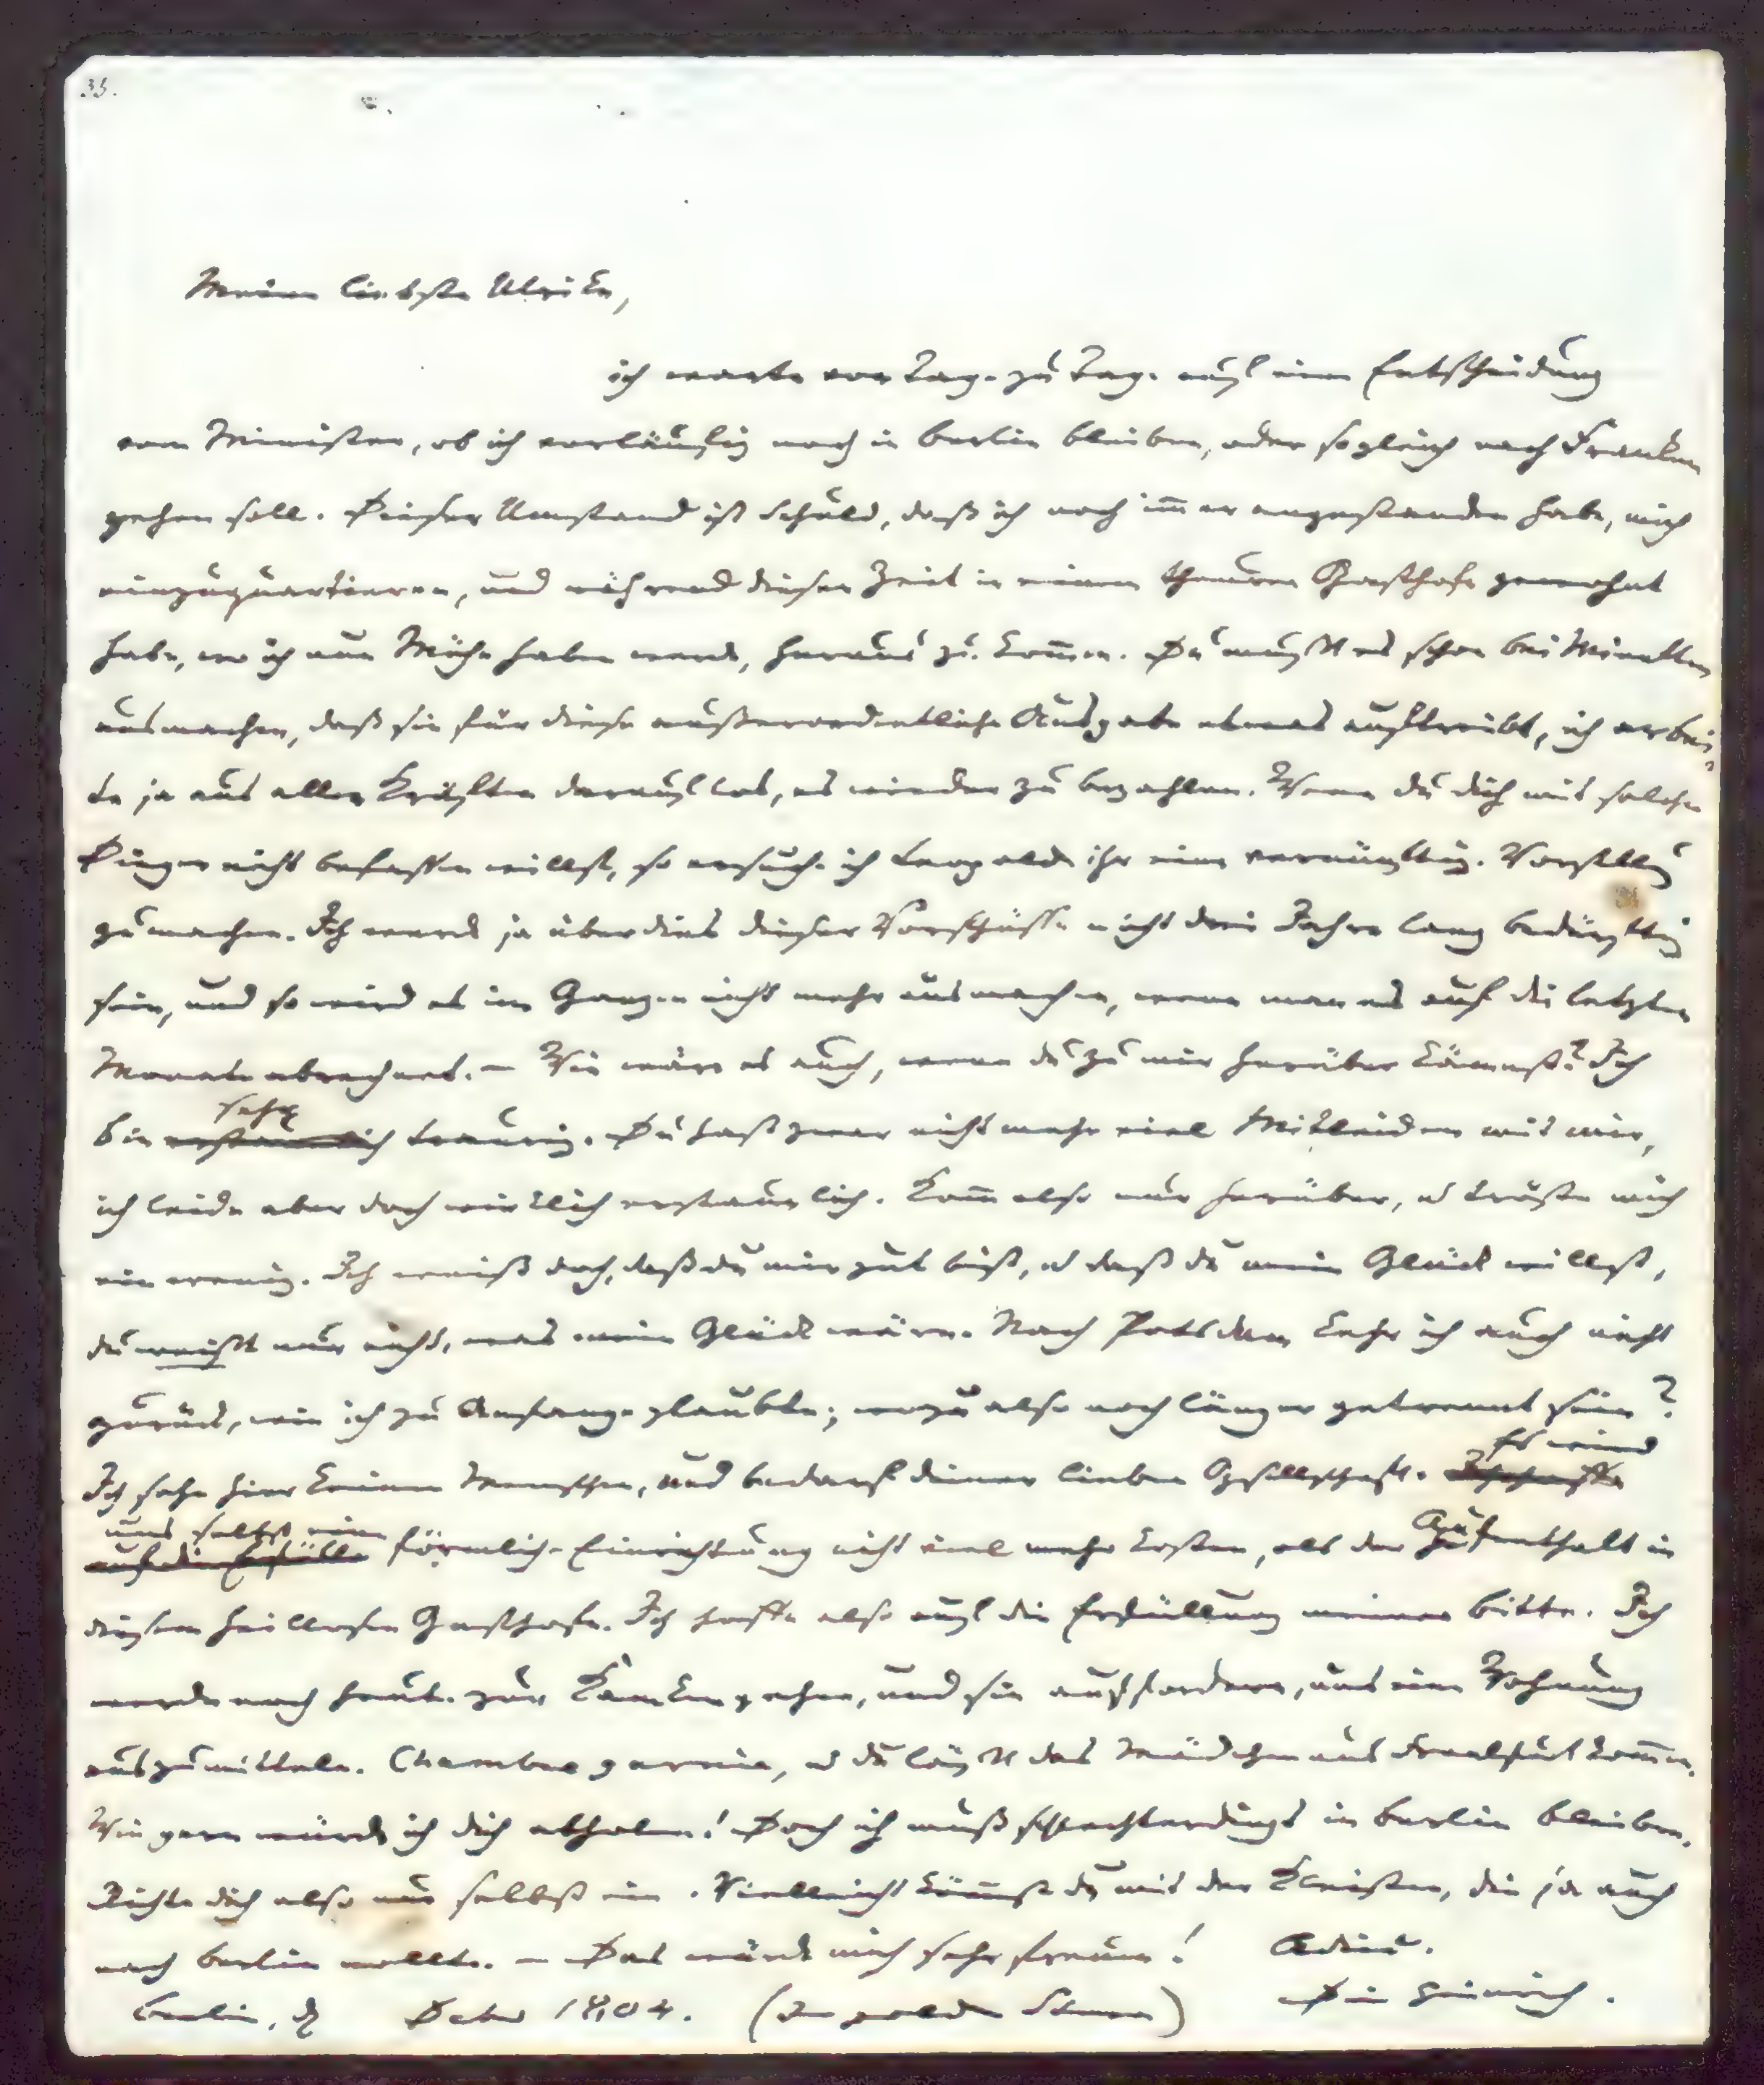 35.
Meine liebste Ulrike,
ich warte von Tage zu Tage auf eine Entscheidung
vom Minister, ob ich vorläufig noch in Berlin bleiben, oder sogleich nach Franken
gehen soll. Dieser Umstand ist Schuld, daß ich noch immer angestanden habe, mich
einzuquartieren, und während dieser Zeit in einem theuren Gasthofe gewohnt
habe, wo ich nun Mühe haben werde, heraus zu kommen. Du mußt es schon bei Minetten
ausmachen, daß sie für diese außerordentliche Ausgabe etwas auftreibt, ich arbei-
te ja aus allen Kräften darauf los, es wieder zu bezahlen. Wenn du dich mit solchen
Dingen nicht befassen willst, so ersuche ich Leopolden ihr eine vernünftige Vorstellung
zu machen. Ich werde ja überdies dieser Vorschüsse nicht drei Jahre lang bedürftig
sein, und so wird es im Ganzen nicht mehr ausmachen, wenn man es auf die letzten
Monate abrechnet. – Wie wäre es auch, wenn du zu mir herüber kämest? Ich
sehr
bin erstaunlich traurig. Du hast zwar nicht mehr viel Mitleiden mit mir,
ich leide aber doch wirklich erstaunlich. Komm also nur herüber, u tröste mich
ein wenig. Ich weiß doch, daß du mir gut bist, u daß du mein Glück willst,
du weißt nur nicht, was mein Glück wäre. Nach Potsdam kehr ich auch nicht
zurück, wie ich zu Anfange glaubte; wozu also noch länger getrennt sein?
Es wird
Ich sehe hier keinen Menschen, und bedarf deiner lieben Gesellschaft. Ich hoffe
uns selbst eine
auf die Erfülle förmliche Einrichtung nicht viel mehr kosten, als der Aufenthalt in
diesem heillosen Gasthofe. Ich hoffe also auf die Erfüllung meiner Bitte. Ich
werde noch heute zur gehen, und sie auffordern, uns eine Wohnung
auszumitteln. Chambre garnie, u du läßt das Mädchen aus Frankfurt kommen.
Wie gern würde ich dich abholen! Doch ich muß schlechterdings in Berlin bleiben.
Richte dich also nur selbst ein. Vielleicht kömmst du mit der Kleisten, die ja auch
nach Berlin wollte. – Das würde mich sehr freuen! Adieu.
Dein Heinrich.
Berlin, d Debr 1804. (Im goldn Stern)